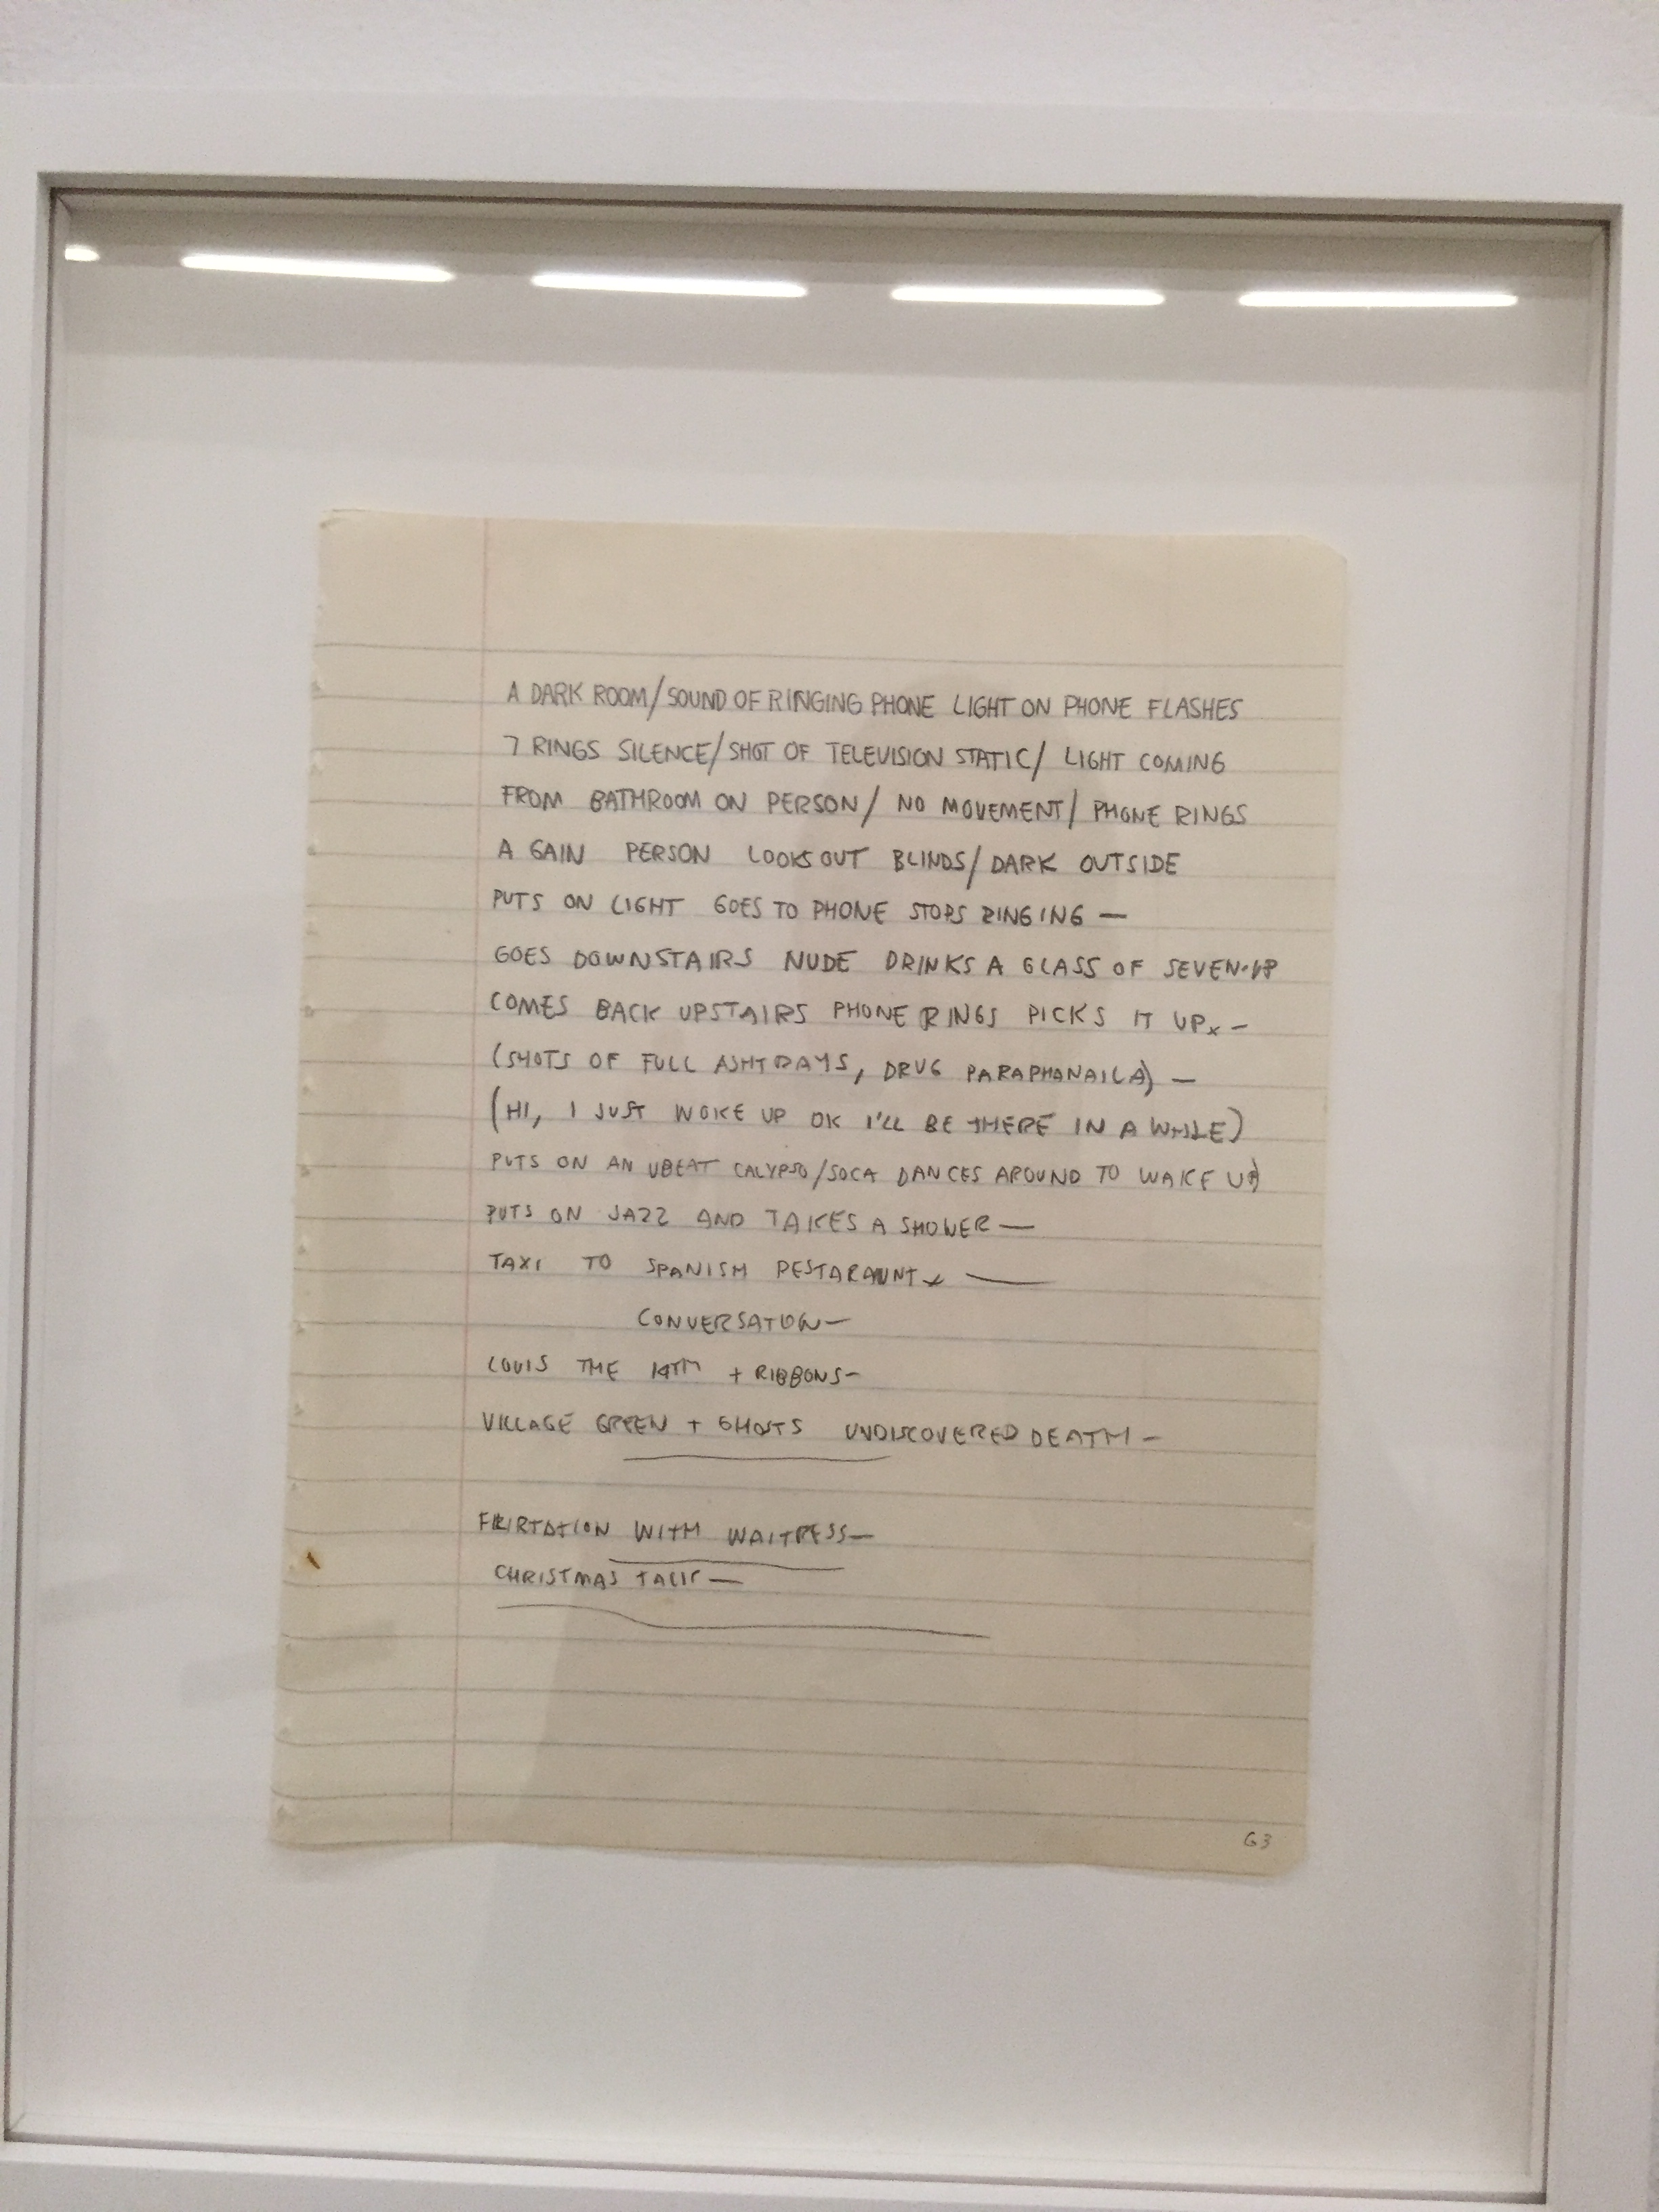 A DARK ROOM/SOUND OF RINGING PHONE LIGHT ON PHONE FLASHES
7 RINGS SILENCE/SHOT OF TELEVISION STATIC/ LIGHT COMING
FROM BATHROOM ON PERSON/ NO MOVEMENT/ PHONE RINGS
A GAIN PERSON LOOKS OUT BLINDS/DARK OUTSIDE
PUTS ON LIGHT GOES TO PHONE STOPS RINGING —
GOES DOWNSTAIRS NUDE DRINKS A GLASS OF SEVEN-UP
COMES BACK UPSTAIRS PHONE RINGS PICKS IT UPx —
(SHOTS OF FULL ASHTRAYS, DRUG PARAPHANAILA) —
(HI, I JUST WOKE UP OK I'LL BE THERE IN A WHILE)
PUTS ON AN UBEAT CALYPSO/SOCA DANCES AROUND TO WAKE UP
PUTS ON JAZZ AND TAKES A SHOWER —
TAXI TO SPANISH RESTARAUNTx —
CONVERSATION —
LOUIS THE 14TH + RIBBONS —
VILLAGE GREEN + GHOSTS UNDISCOVERED DEATH —
FLIRTATION WITH WAITRESS —
CHRISTMAS TALK —
G3